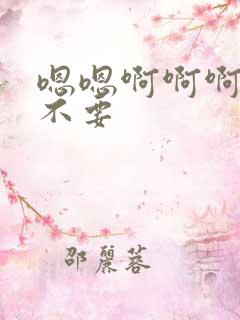 嗯嗯啊啊啊
不要
邵麗蓉